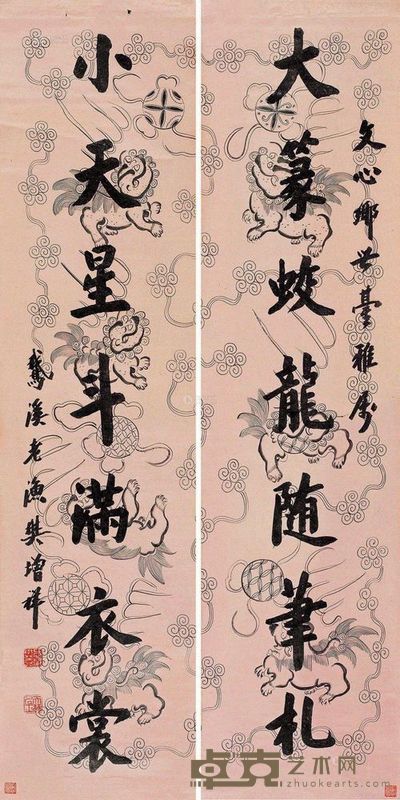 文心乡世台雅属
大篆蛟龍随筆札
小天星斗滿衣裳
鷲溪老漁樊增祥
卓克艺术网
zhuokearts.com